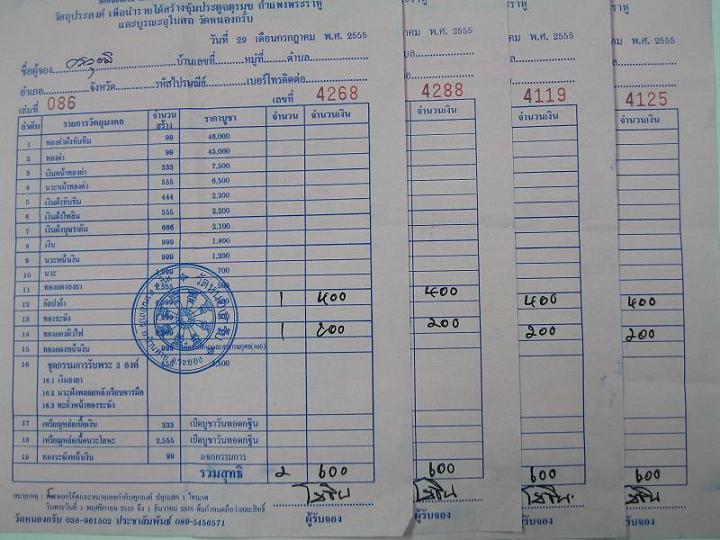 วัตถุประสงค์ เพื่อนำรายได้สร้างซุ้มประตูจตุรมุข กำแพงพระราหู
และบูรณะอุโบสถ วัดหนองกรับ
วันที่ 29 เดือนกรกฎาคม พ.ศ. 2555
ชื่อผู้จอง บ้านเลขที่ หมู่ที่ ตำบล
อำเภอ จังหวัด รหัสไปรษณีย์ เบอร์โทรติดต่อ
เล่มที่ 086 เลขที่ 4268
ลำดับ รายการวัตถุมงคล จำนวนสร้าง ราคาบูชา จำนวน จำนวนเงิน
1 ทองคำฝังทับทิม 99 46,000
2 ทองคำ 99 45,000
3 เงินหน้าทองคำ 333 7,500
4 นวะหน้าทองคำ 555 6,500
5 เงินฝังทับทิม 444 2,300
6 เงินฝังไพลิน 555 2,200
7 เงินฝังบุษราคัม 666 2,100
8 เงิน 999 1,800
9 นวะหน้าเงิน 999 1,200
10 นวะ 700
11 ทองแดงลงยา
12 อัลปาก้า 1 400
13 ทองระฆัง
14 ทองแดงผิวไฟ 1 200
15 ทองแดงหน้าเงิน
16 ชุดกรรมการรับพระ 3 องค์
16.1 เงินลงยา
16.2 นวะฝังพลอยหลังเรียบจารมือ
16.3 ตะกั่วหน้าทองระฆัง
17 เหรียญหล่อเนื้อเงิน 333 เปิดบูชาวันทอดกฐิน
18 เหรียญหล่อเนื้อนวะโลหะ 2,555 เปิดบูชาวันทอดกฐิน
19 ทองระฆังหน้าเงิน 99 แจกกรรมการ
รวมสุทธิ 2 600
ผู้รับจอง
วัดหนองกรับ 038-961502 ประชาสัมพันธ์ 089-5456571
พ.ศ. 2555
4288
จำนวนเงิน
400
200
600
ผู้รับจอง
พ.ศ. 2555
4119
จำนวนเงิน
400
200
600
ผู้รับจอง
พ.ศ. 2555
4125
จำนวนเงิน
400
200
600
ผู้รับจอง